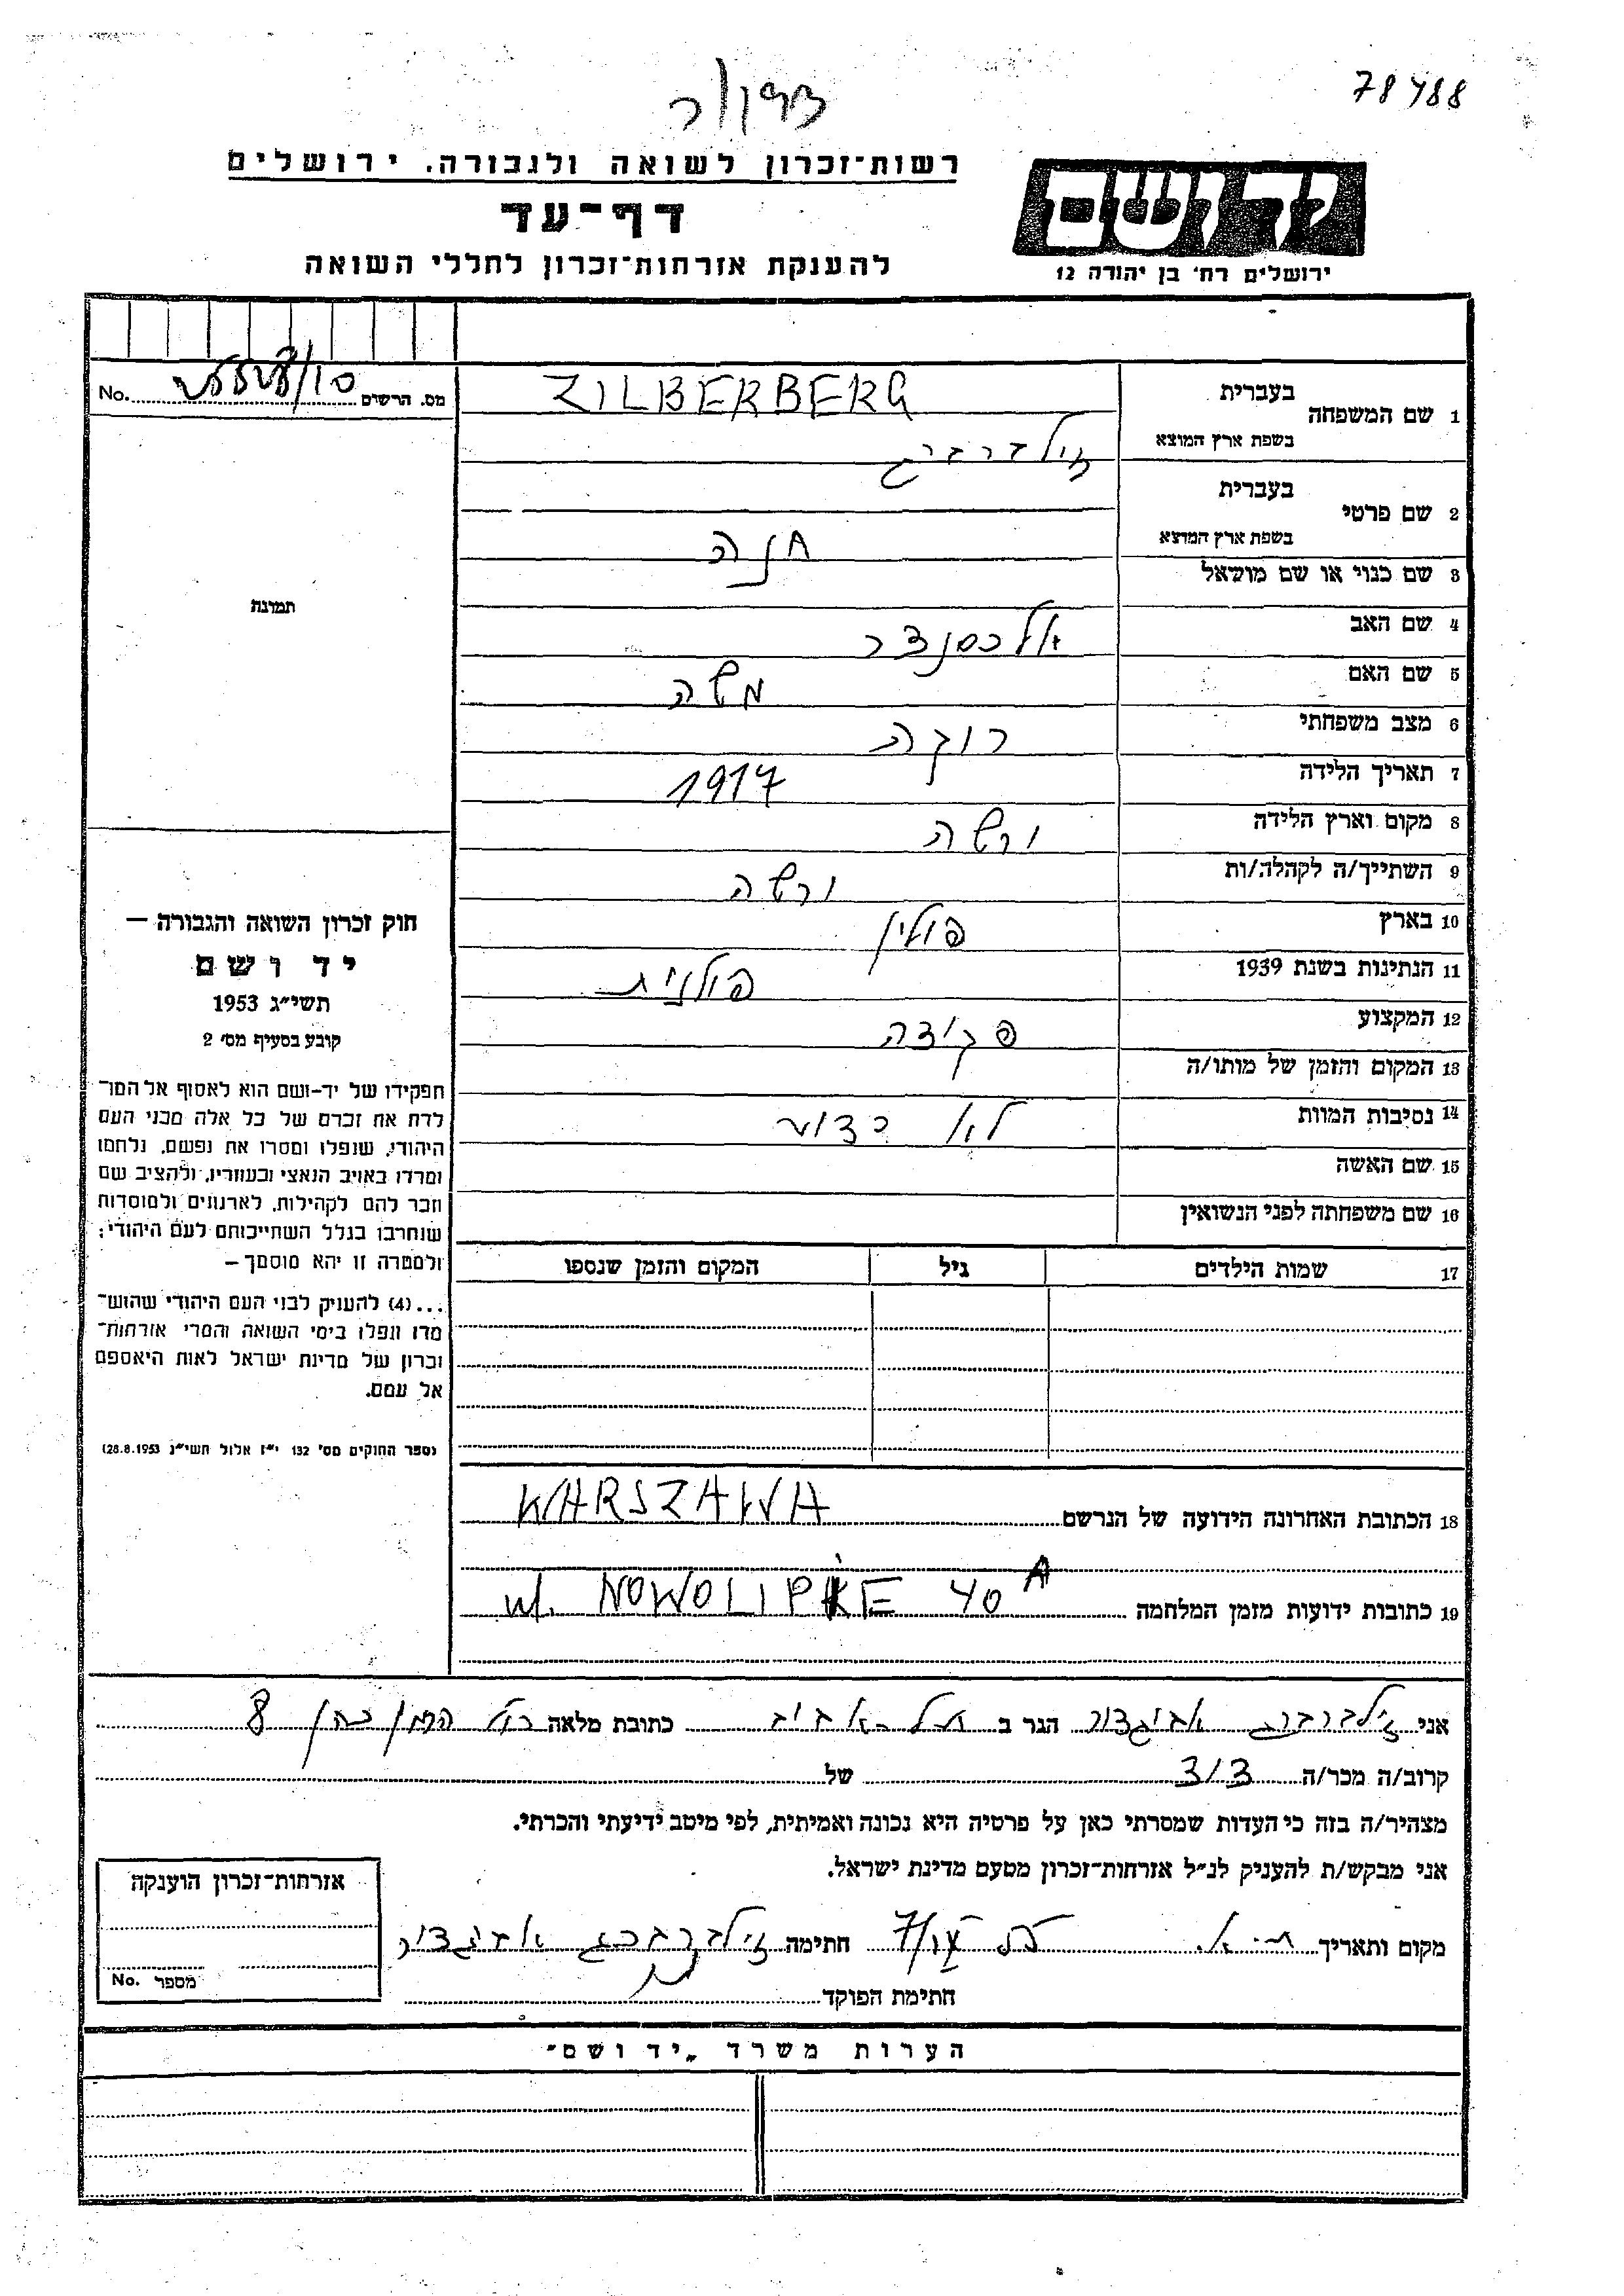 78488
רשות־זכרון לשואה ולגבורה. ירושלים
דף־עד
להענקת אזרחות־זכרון לחללי השואה
יד ושם
ירושלים רח׳ בן יהודה 12
No. מס. הרשום
1 שם המשפחה בעברית ZILBERBERG
בשפת ארץ המוצא זילברברג
2 שם פרטי בעברית
בשפת ארץ המוצא חנה
3 שם כנוי או שם מושאל
4 שם האב אלכסנדר
5 שם האם משה
6 מצב משפחתי רוקה
7 תאריך הלידה 1917
8 מקום וארץ הלידה ורשה
9 השתייך/ה לקהלה/ות ורשה
10 בארץ פולין
11 הנתינות בשנת 1939 פולנית
12 המקצוע פקידה
13 המקום והזמן של מותו/ה
14 נסיבות המוות לא ידוע
15 שם האשה
16 שם משפחתה לפני הנשואין
17 שמות הילדים גיל המקום והזמן שנספו
תמונה
חוק זכרון השואה והגבורה —
יד ושם
תשי״ג 1953
קובע בסעיף מס׳ 2
תפקידו של יד-ושם הוא לאסוף אל המו־
לדת את זכרם של כל אלה מבני העם
היהודי, שנפלו ומסרו את נפשם, נלחמו
ומרדו באויב הנאצי ובעוזריו, ולהציב שם
וזכר להם לקהילות, לארגונים ולמוסדות
שנחרבו בגלל השתייכותם לעם היהודי;
ולמטרה זו יהא מוסמך —
...(4) להעניק לבני העם היהודי שהוש־
מדו ונפלו בימי השואה והמרי אזרחות־
זכרון של מדינת ישראל לאות היאספם
אל עמם.
(ספר החוקים מס׳ 132 י״ז אלול תשי״ג 28.8.1953)
18 הכתובת האחרונה הידועה של הנרשם WARSZAWA
19 כתובות ידועות מזמן המלחמה ul. NOWOLIPKIE 40 A
אני זילברברג אביגדור הגר ב תל-אביב כתובת מלאה הרמן כהן 8
קרוב/ה מכר/ה דוד של
מצהיר/ה בזה כי העדות שמסרתי כאן על פרטיה היא נכונה ואמיתית, לפי מיטב ידיעתי והכרתי.
אני מבקש/ת להעניק לנ״ל אזרחות-זכרון מטעם מדינת ישראל.
מקום ותאריך ת.א. חתימה זילברברג אביגדור
חתימת הפוקד
אזרחות־זכרון הוענקה
No. מספר
הערות משרד „יד ושם״